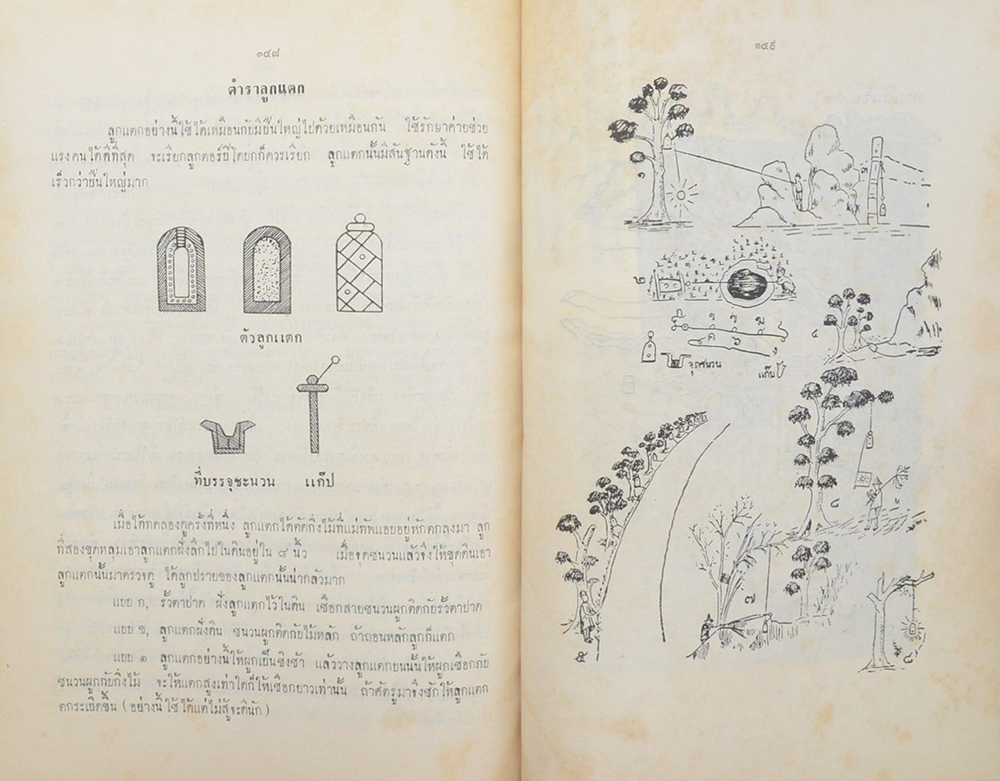 ๑๔๘
ตำราลูกแตก
ลูกแตกอย่างนี้ใช้ได้เหมือนกับมีปืนใหญ่ไปด้วยเหมือนกัน ใช้รักษาค่ายช่วย
แรงคนได้ดีที่สุด จะเรียกลูกตอร์ปิโดบกก็ควรเรียก ลูกแตกนั้นมีสันฐานดังนี้ ใช้ได้
เร็วกว่าปืนใหญ่มาก
ตัวลูกแตก
ที่บรรจุชะนวน แก๊ป
เมื่อได้ทดลองดูครั้งที่หนึ่ง ลูกแตกได้ตัดกิ่งไม้ที่แม่ทัพแอบอยู่หักตกลงมา ลูก
ที่สองขุดหลุมเอาลูกแตกฝังลึกไปในดินอยู่ใน ๘ นิ้ว เมื่อจุดชนวนแล้วจึงให้ขุดดินเอา
ลูกแตกนั้นมาตรวจดู ได้ลูกปรายของลูกแตกนั้นน่ากลัวมาก
แบบ ก, รั้วตาปาด ฝังลูกแตกไว้ในดิน เชือกสายชนวนผูกติดกับรั้วตาปาด
แบบ ข, ลูกแตกฝังดิน ชนวนผูกติดกับไม้หลัก ถ้าถอนหลักลูกก็แตก
แบบ ๑ ลูกแตกอย่างนี้ให้ผูกเป็นชิงช้า แล้ววางลูกแตกบนนั้นให้ผูกเชือกกับ
ชนวนผูกกับกิ่งไม้ จะให้แตกสูงเท่าใดก็ให้เชือกยาวเท่านั้น ถ้าศัตรูมาจึงชักให้ลูกแตก
ตกระเบิดขึ้น (อย่างนี้ใช้ได้แต่ไม่สู้จะดีนัก)
๑๔๙
๑
๒
จุกชนวน
แก๊ป
๔
๘
๗
๕